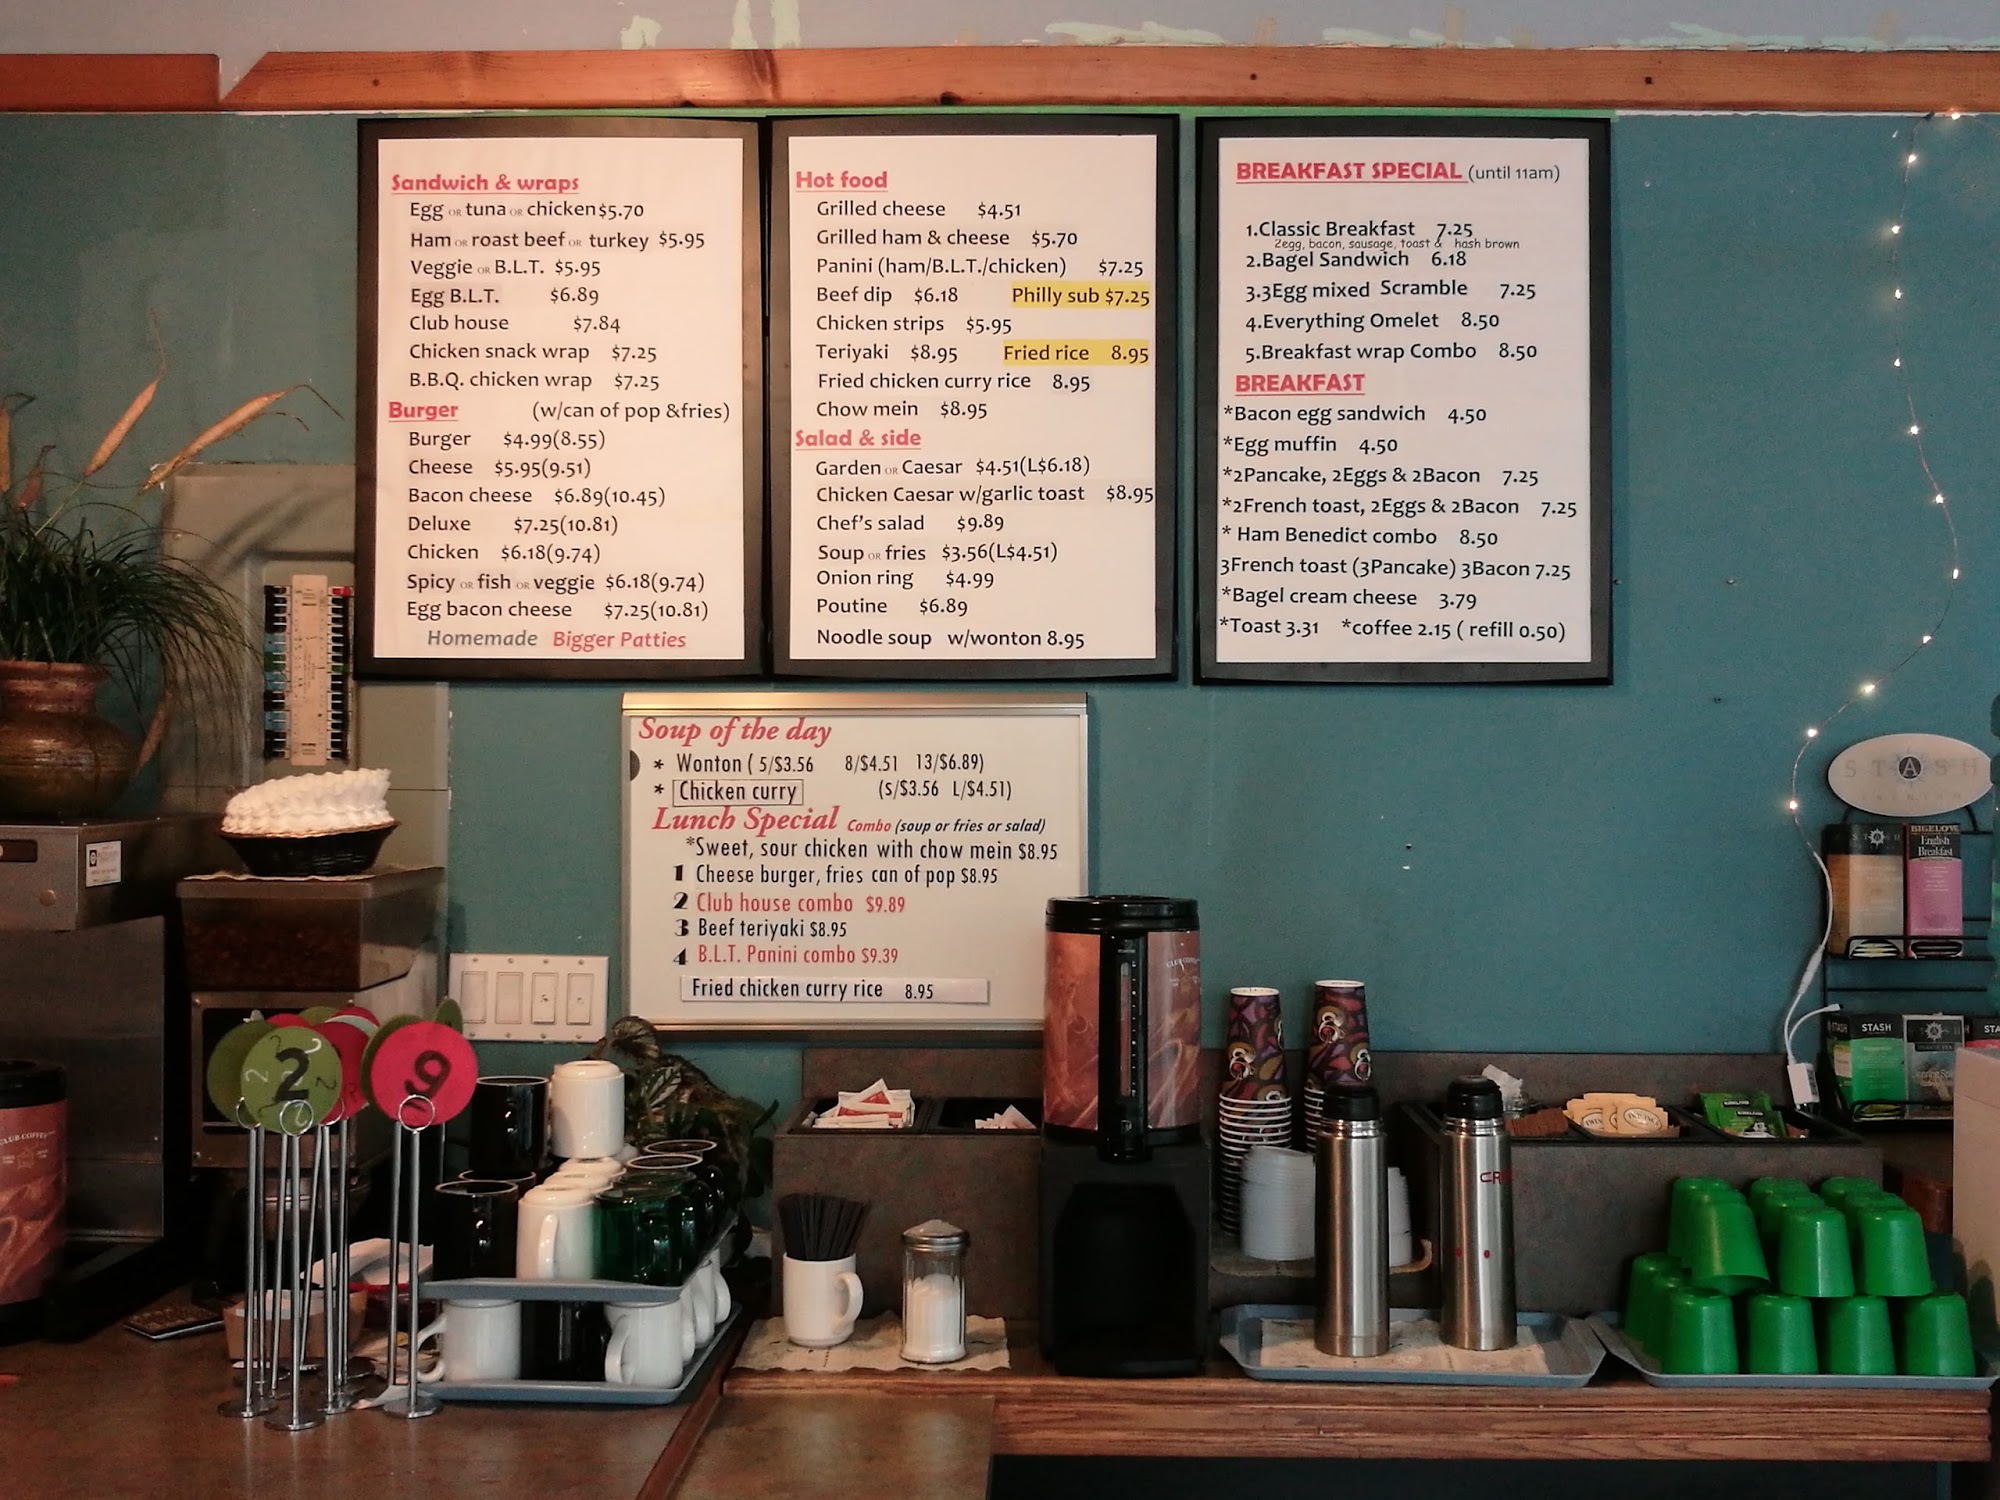 Sandwich & wraps
Egg OR tuna OR chicken $5.70
Ham OR roast beef OR turkey $5.95
Veggie OR B.L.T. $5.95
Egg B.L.T. $6.89
Club house $7.84
Chicken snack wrap $7.25
B.B.Q. chicken wrap $7.25
Burger (w/can of pop &fries)
Burger $4.99(8.55)
Cheese $5.95(9.51)
Bacon cheese $6.89(10.45)
Deluxe $7.25(10.81)
Chicken $6.18(9.74)
Spicy OR fish OR veggie $6.18(9.74)
Egg bacon cheese $7.25(10.81)
Homemade Bigger Patties
Hot food
Grilled cheese $4.51
Grilled ham & cheese $5.70
Panini (ham/B.L.T./chicken) $7.25
Beef dip $6.18 Philly sub $7.25
Chicken strips $5.95
Teriyaki $8.95 Fried rice 8.95
Fried chicken curry rice 8.95
Chow mein $8.95
Salad & side
Garden OR Caesar $4.51(L$6.18)
Chicken Caesar w/garlic toast $8.95
Chef's salad $9.89
Soup OR fries $3.56(L$4.51)
Onion ring $4.99
Poutine $6.89
Noodle soup w/wonton 8.95
BREAKFAST SPECIAL (until 11am)
1.Classic Breakfast 7.25
2egg, bacon, sausage, toast & hash brown
2.Bagel Sandwich 6.18
3.3Egg mixed Scramble 7.25
4.Everything Omelet 8.50
5.Breakfast wrap Combo 8.50
BREAKFAST
*Bacon egg sandwich 4.50
*Egg muffin 4.50
*2Pancake, 2Eggs & 2Bacon 7.25
*2French toast, 2Eggs & 2Bacon 7.25
* Ham Benedict combo 8.50
3French toast (3Pancake) 3Bacon 7.25
*Bagel cream cheese 3.79
*Toast 3.31 *coffee 2.15 ( refill 0.50)
Soup of the day
* Wonton ( 5/$3.56 8/$4.51 13/$6.89)
* Chicken curry (s/$3.56 L/$4.51)
Lunch Special Combo (soup or fries or salad)
*Sweet, sour chicken with chow mein $8.95
1 Cheese burger, fries can of pop $8.95
2 Club house combo $9.89
3 Beef teriyaki $8.95
4 B.L.T. Panini combo $9.39
Fried chicken curry rice 8.95
STASH
BIGELOW
English
Breakfast
STASH
2
9
CLUB COFFEE